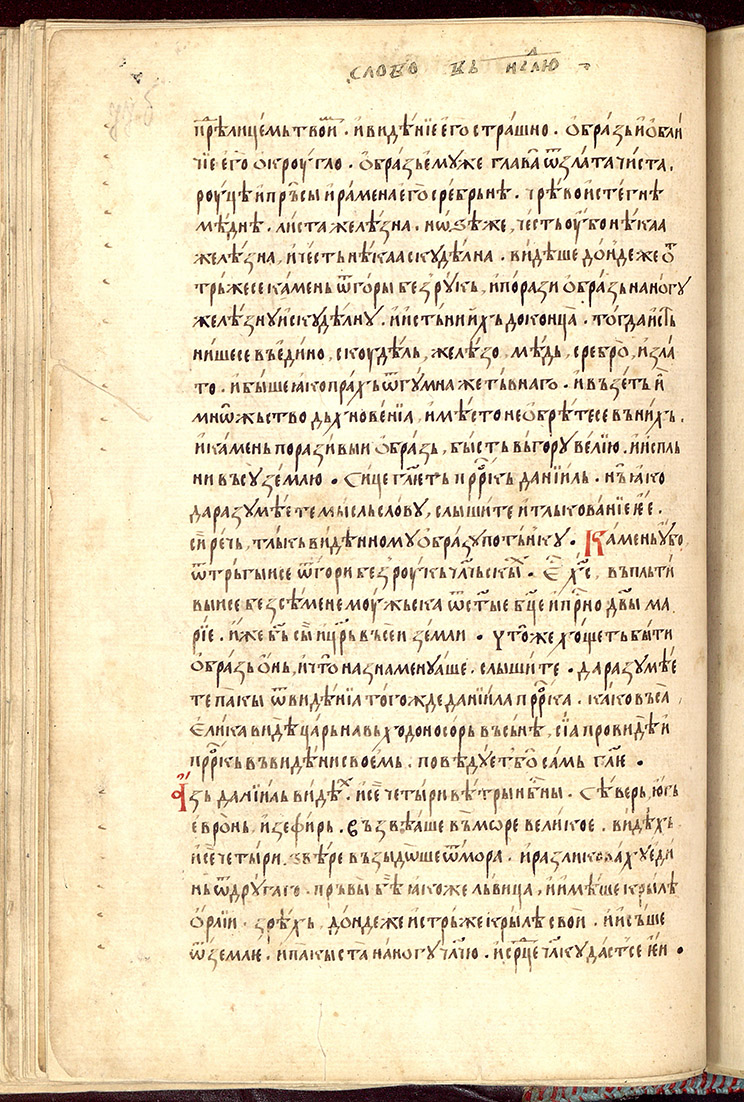 слово въ нелю
прѣлицемьтвоим . ивидѣнїе его страшно . ѻбразь и ѻбли
чїе его ѻкроугло . ѻбразь емуже глава ѿ злата чиста .
роуцѣ и прьсы и рамена его сребрьнѣ . чрѣво и стегнѣ
мѣднѣ . листа желѣзна . нѡзѣже , честь оубо нѣкаа
желѣзна , и честь нѣкаа скудѣлна . видѣше дондеже ѿ
трьжесе камень ѿ горы без рукь , и порази ѻбразь на ногу
желѣзну и скудѣлну . и истьни ихь до конца . тогда исть
нишесе въ едино , скоудѣль , желѣзо , мѣдь , сребро , и зла
то . и быше ꙗко прахь ѿ гумна жетьвнаго . и възеть и
мнѡжьство дьхновенїа , и мѣсто не обрѣтесе въ нихь .
и камень поразивыи ѻбразь , бысть въ гору велїю . и испль
ни въсу землю . сице глть прркь данїиль . нь ꙗко
да разумѣете мысль слову , слышите и тлькованїе ѥе .
сирѣчь , тлькь видѣнному ѻбразу по тьнку . Камень оубо ,
ѿтрьгыисе ѿ гори без роукь члчьскыхь . Ѥ хс , въплоти
выисе без сѣмене моужьска ѿ стые бце и прно двы ма
рїе . иже бь сы и црь въсеи земли . что же хощеть быти
ѻбразь ѻнь , и что назнаменуаше . слышите . да разумѣе
те пакы ѿ видѣнїа того жде данїила пррка . како въса
елика видѣ царь навьходоносорь въ сьнѣ , сїа провидѣ и
прркь въ видѣни своемь . повѣдует бо самь глѥ .
Азь данїиль видѣх . и се четыри вѣтры нбныи . сѣверь , югь
евронь , и зефирь . възвѣаше въ море великое . видѣхь
и се четыри звѣре възыдѡше ѿ мора . и различахуе еди
нь ѿ другаго . прьвы бѣе ꙗкоже львица , и имѣше крылѣ
ѻрлїи . зрѣхь , дондеже истрьже крылѣ свои . и исьше
ѿ землѥ . и пакы ста на ногу члчю . и срце члку дастсе ѥи .